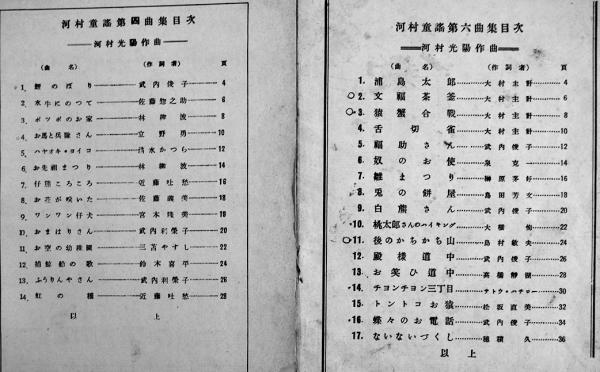 河村童謠第四曲集目次
河村光陽作曲
（曲名）（作詞者）頁
1. 鯉のぼり 武内俊子 4
2. 水牛にのつて 佐藤惣之助 6
3. ポツポのお家 林柳波 8
4. お馬と兵隊さん 立野勇 10
5. ハヤオキ・ヨイコ 清水かつら 12
6. お先祖まつり 林柳波 14
7. 仔熊ころころ 近藤吐愁 16
8. お花が咲いた 佐藤義美 18
9. ワンワン仔犬 宮本 20
10. おまはりさん 武内利榮子 20
11. お空の幼稚園 三苫やすし 22
12. 捕鯨船の歌 鈴木喜平 24
13. ふうりんやさん 武内利榮子 26
14. 虹の橋 近藤吐愁 28
以上
河村童謠第六曲集目次
河村光陽作曲
（曲名）（作詞者）頁
1. 浦島太郎 大村主計 4
2. 文福茶釜 大村主計 6
3. 猿蟹合戰 大村主計 8
4. 舌切雀 大村主計 10
5. 福助さん 武内俊子 12
6. 奴のお使 泉克 14
7. 雛まつり 榊原芽好 16
8. 兎の餅屋 島田芳文 18
9. 白熊さん 武内俊子 20
10. 桃太郎さんのハイキング 大槻 22
11. 後のかちかち山 島村敏夫 24
12. 殿樣道中 武内俊子 26
13. お笑ひ道中 高橋靜 28
14. チヨンチヨン三丁目 サトウ・ハチロー 30
15. トントコお猿 松坂直美 32
16. 蝶々のお電話 武内俊子 34
17. ないないづくし 穗積久 36
以上